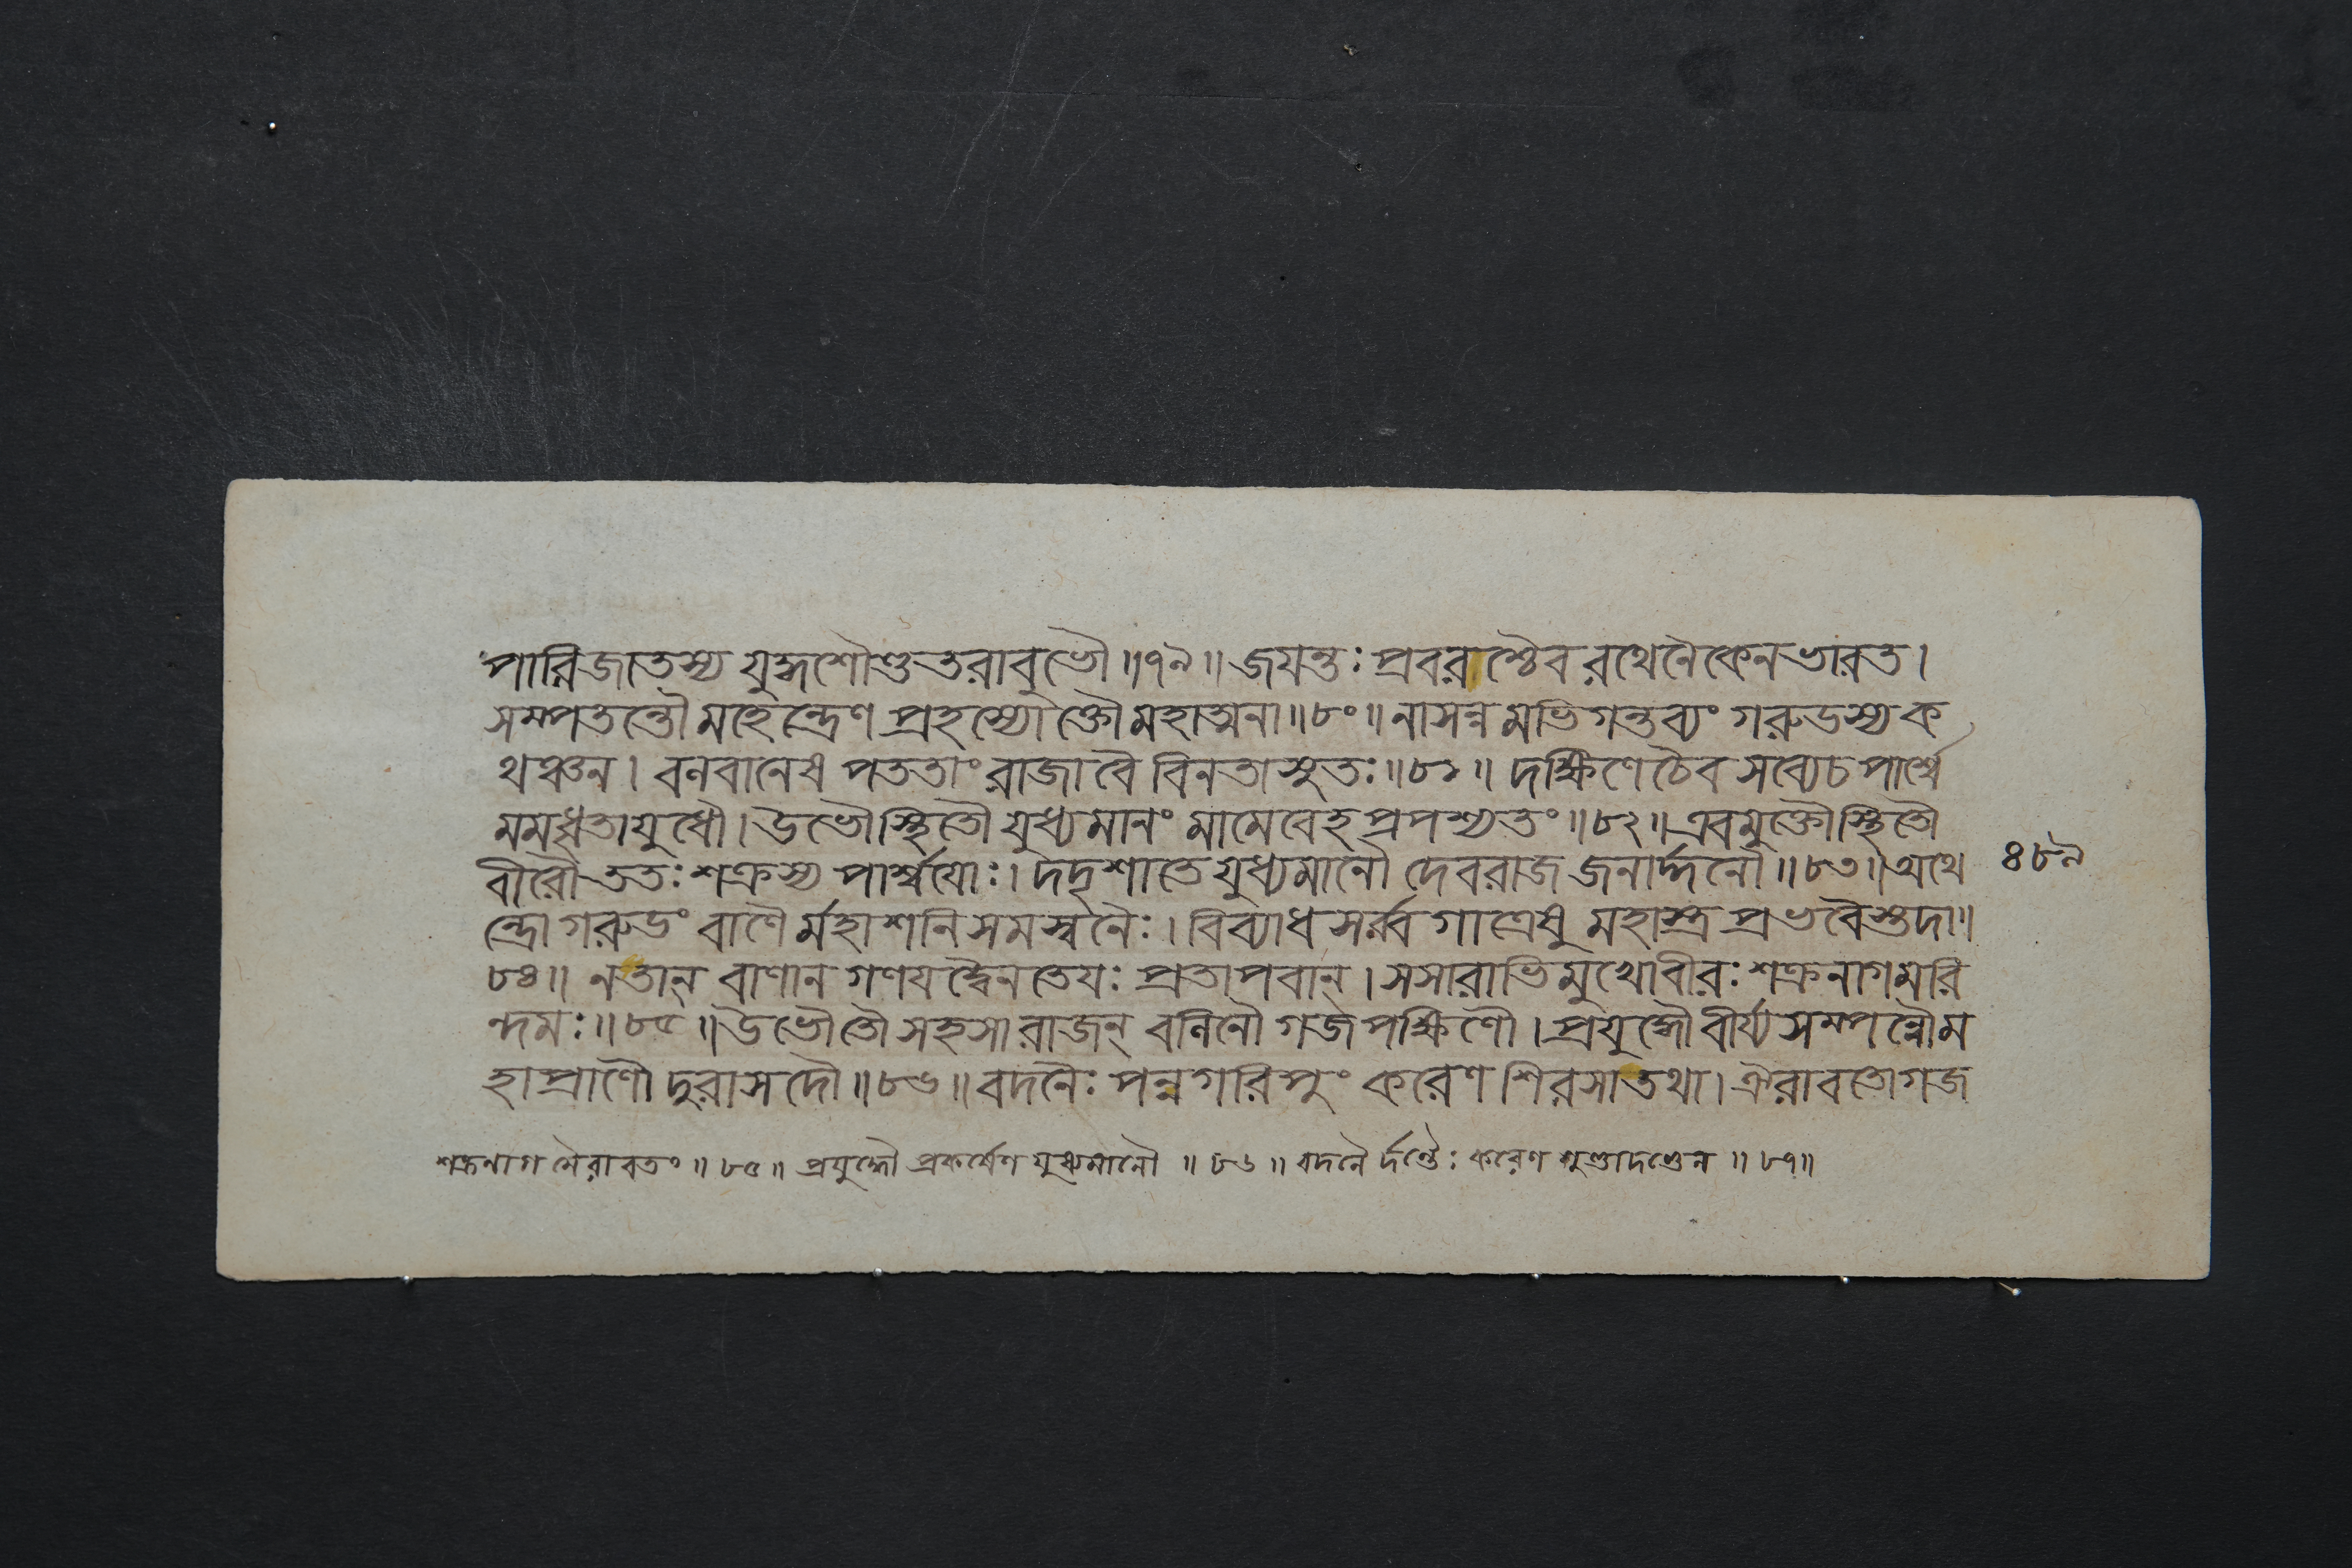 পারিজাতস্য যুদ্ধশৌণ্ডতরাবুভৌ॥৭৯॥জয়ন্তঃ প্রবরাশ্চৈব রথেনৈকেন ভারত।
সম্পতন্তৌ মহেন্দ্রেণ প্রহস্যোক্তৌ মহাত্মনা॥৮০॥নাসন্ন মভিগন্তব্যং গরুডস্য ক
থঞ্চন। বলবানেষ পততাং রাজা বৈ বিনতাসুতঃ॥৮১॥ দক্ষিণে চৈব সব্যেচ পার্শ্বে
মমধৃতাযুধৌ।উভৌস্থিতৌ যুধ্যমানং মামেবেহ প্রপশ্যতং॥৮২॥এবমুক্তৌস্থিতৌ
বীরৌ ততঃ শক্রস্য পার্শ্বয়োঃ। দদৃশাতে যুধ্যমানৌ দেবরাজ জনার্দ্দনৌ॥৮৩॥অথে
ন্দ্রো গরুডং বাণৈ র্মহাশনি সমস্বনৈঃ। বিব্যাধ সর্ব্ব গাত্রেষু মহাস্ত্র প্রভবৈস্তদা॥
৮৪॥ নতান্ বাণান গণয়দ্বৈনতেযঃ প্রতাপবান্।সসারাভিমুখোবীরঃ শক্রনাগমরি
ন্দমঃ॥৮৫॥উভৌতৌ সহসা রাজন্ বলিনৌ গজপক্ষিণৌ।প্রযুদ্ধৌ বীর্য্য সম্পন্নৌ ম
হাপ্রাণৌ দুরাসদৌ॥৮৬॥বদনৈঃ পন্নগরিপুং করেণ শিরসা তথা।ঐরাবতো গজ
৪৮৯
শক্রনাগ মৈরাবতং॥৮৫॥ প্রযুদ্ধৌ প্রকর্ষেণ যুধ্যমানৌ॥৮৬॥ বদনৈ র্দন্তৈঃ করেণ শুণ্ডাদণ্ডেন॥৮৭॥